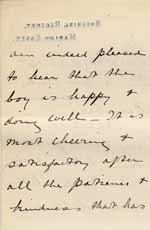 am indeed pleased
to hear that the
boy is happy &
doing well – It is
most cheering &
satisfactory after
all the patience &
kindness that has